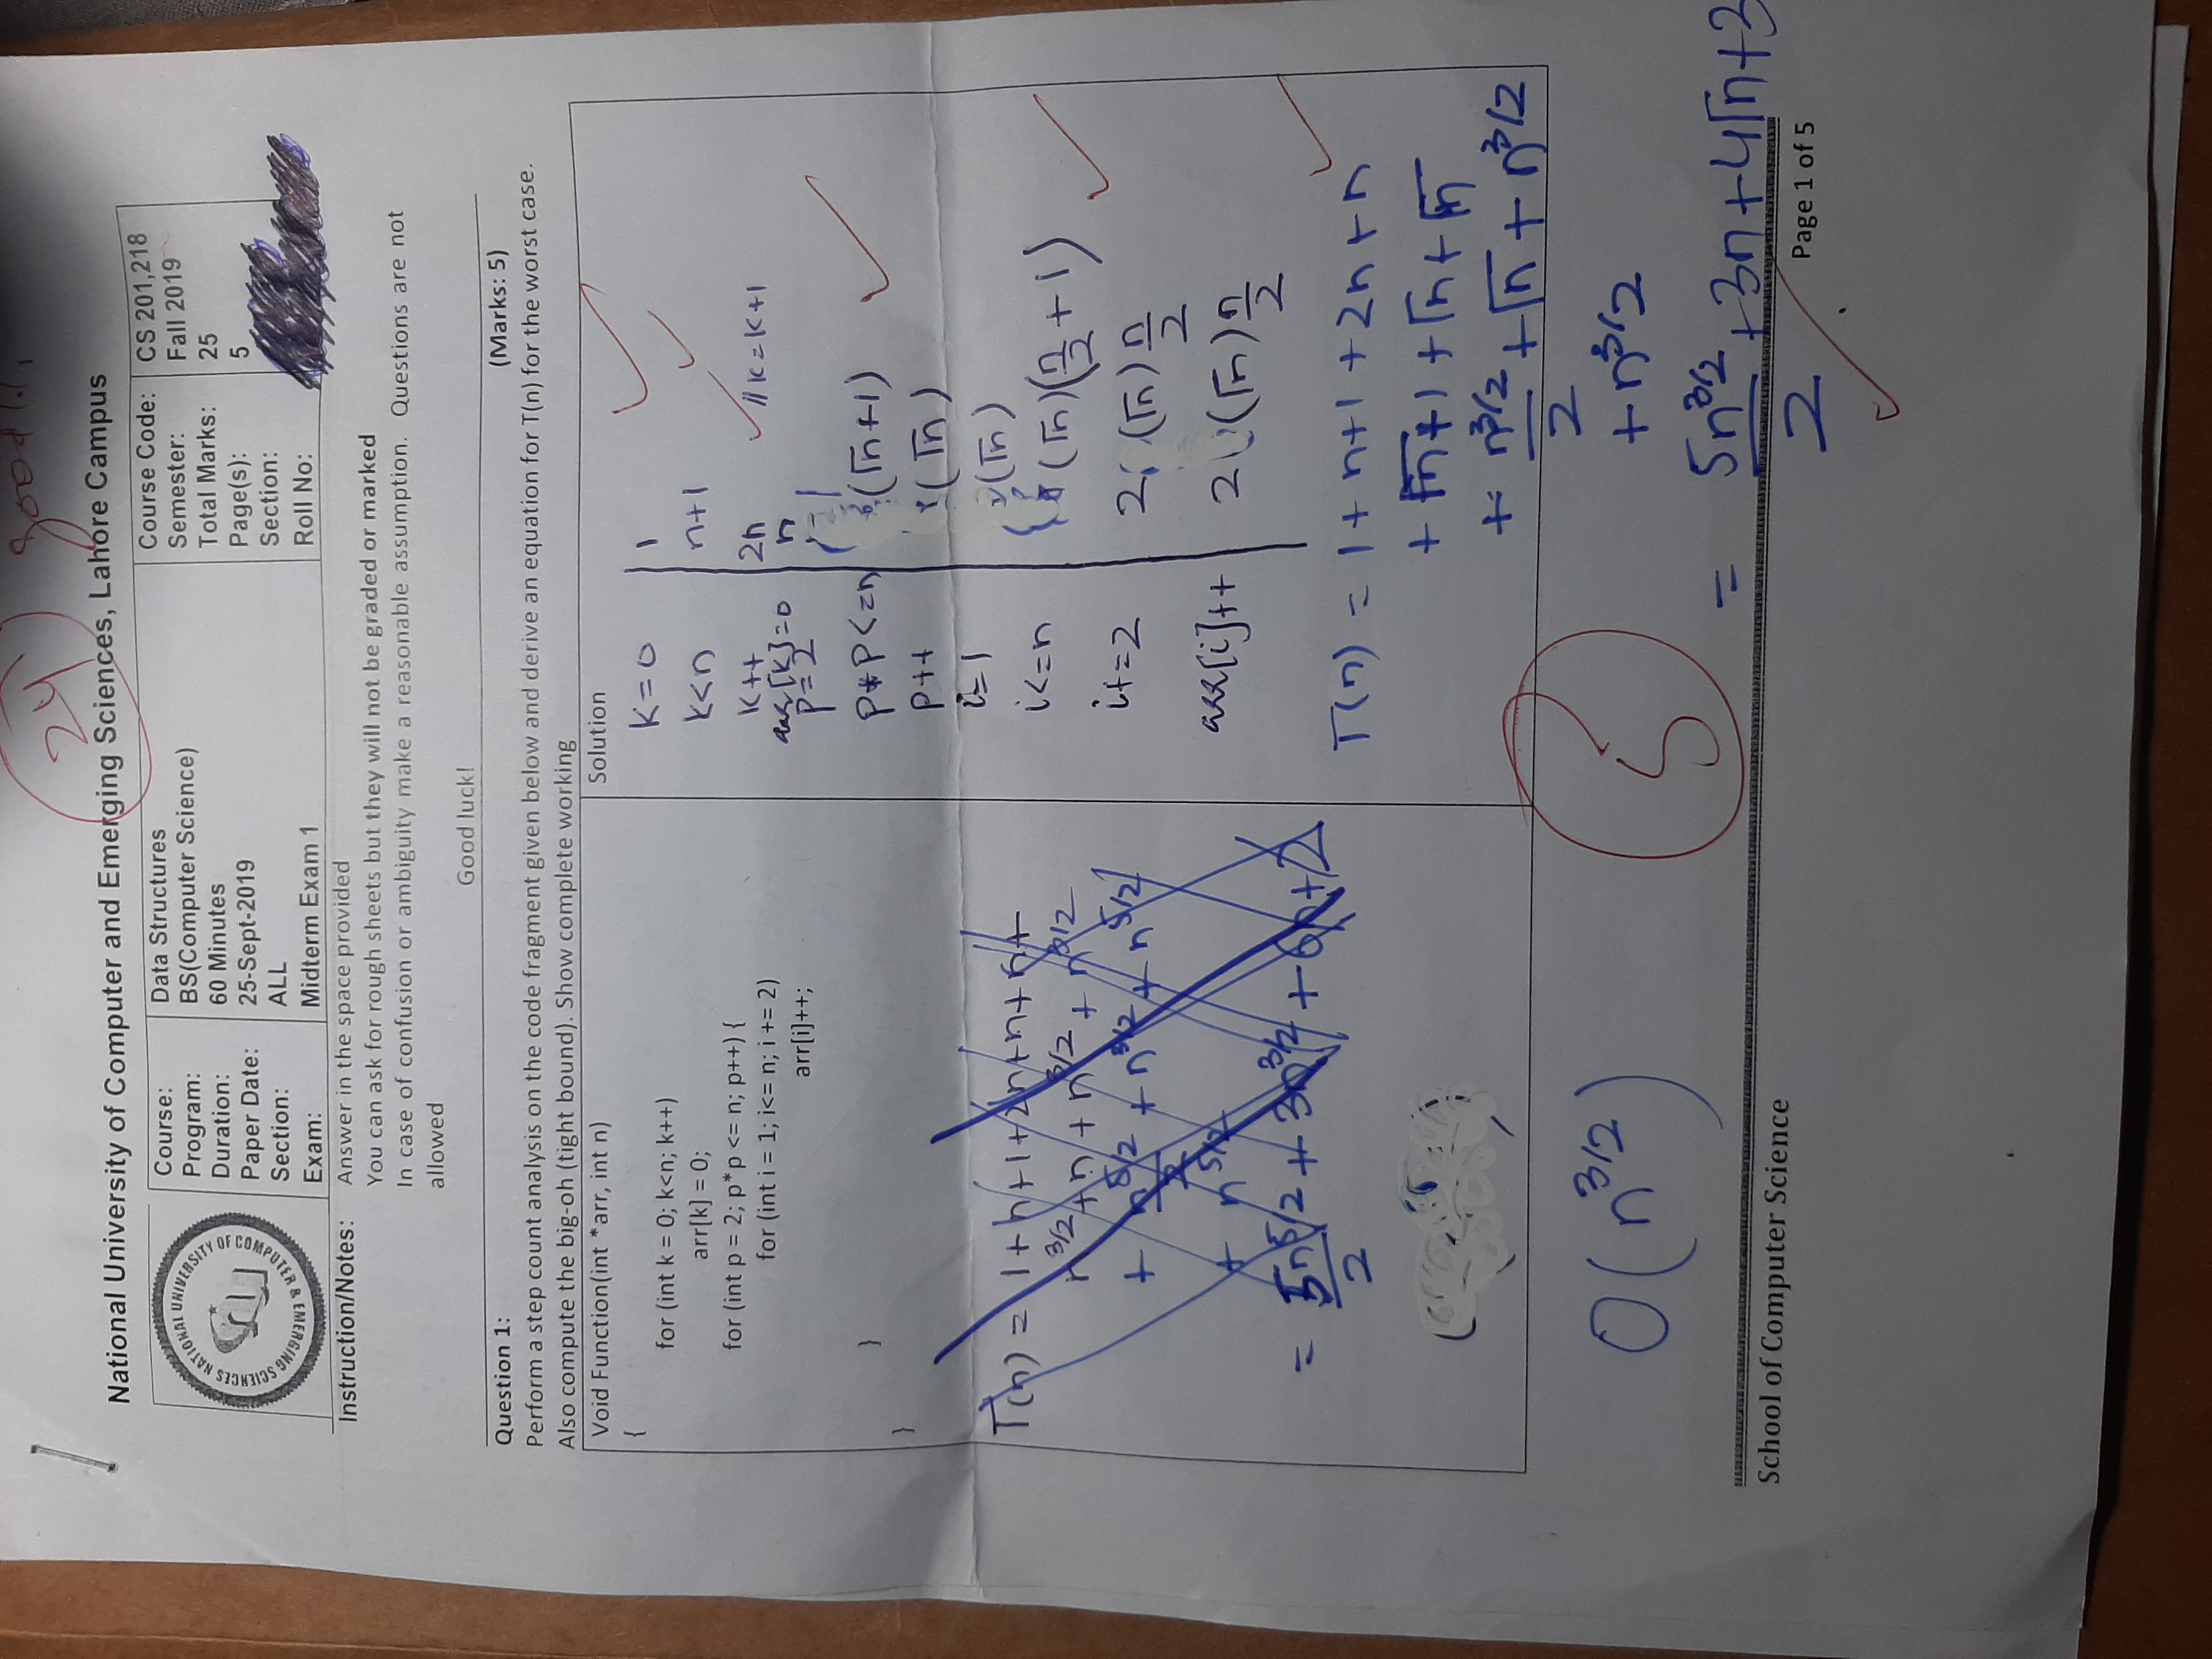 24 good
National University of Computer and Emerging Sciences, Lahore Campus
NATIONAL UNIVERSITY OF COMPUTER & EMERGING SCIENCES
Course: Data Structures Course Code: CS 201,218
Program: BS(Computer Science) Semester: Fall 2019
Duration: 60 Minutes Total Marks: 25
Paper Date: 25-Sept-2019 Page(s): 5
Section: ALL Section:
Exam: Midterm Exam 1 Roll No:
Instruction/Notes: Answer in the space provided
You can ask for rough sheets but they will not be graded or marked
In case of confusion or ambiguity make a reasonable assumption. Questions are not
allowed
Good luck!
Question 1: (Marks: 5)
Perform a step count analysis on the code fragment given below and derive an equation for T(n) for the worst case.
Also compute the big-oh (tight bound). Show complete working
Void Function(int *arr, int n)
{
for (int k = 0; k<n; k++)
arr[k] = 0;
for (int p = 2; p*p <= n; p++) {
for (int i = 1; i<= n; i += 2)
arr[i]++;
}
}
T(n) = 1+n+1+2n+n+n+
n^3/2 + n + n^3/2 + n^3/2
+ n^5/2/2 + n^3/2 + n^5/2
+ n^5/2
= 5n^5/2/2 + 3n^3/2 + 6n+2
O(n^3/2)
Solution
k=0 1
k<n n+1
k++ 2n //k=k+1
arr[k]=0 n
p=2 1
p*p<=n (√n+1)
p++ (√n)
i=1 (√n)
i<=n (√n)(n/2+1)
i+=2 2(√n)n/2
arr[i]++ 2(√n)n/2
T(n) = 1+n+1+2n+n
+√n+1+√n+√n
+ n^3/2/2 +√n+n^3/2
+n^3/2
= 5n^3/2/2 +3n+4√n+3
5
School of Computer Science
Page 1 of 5